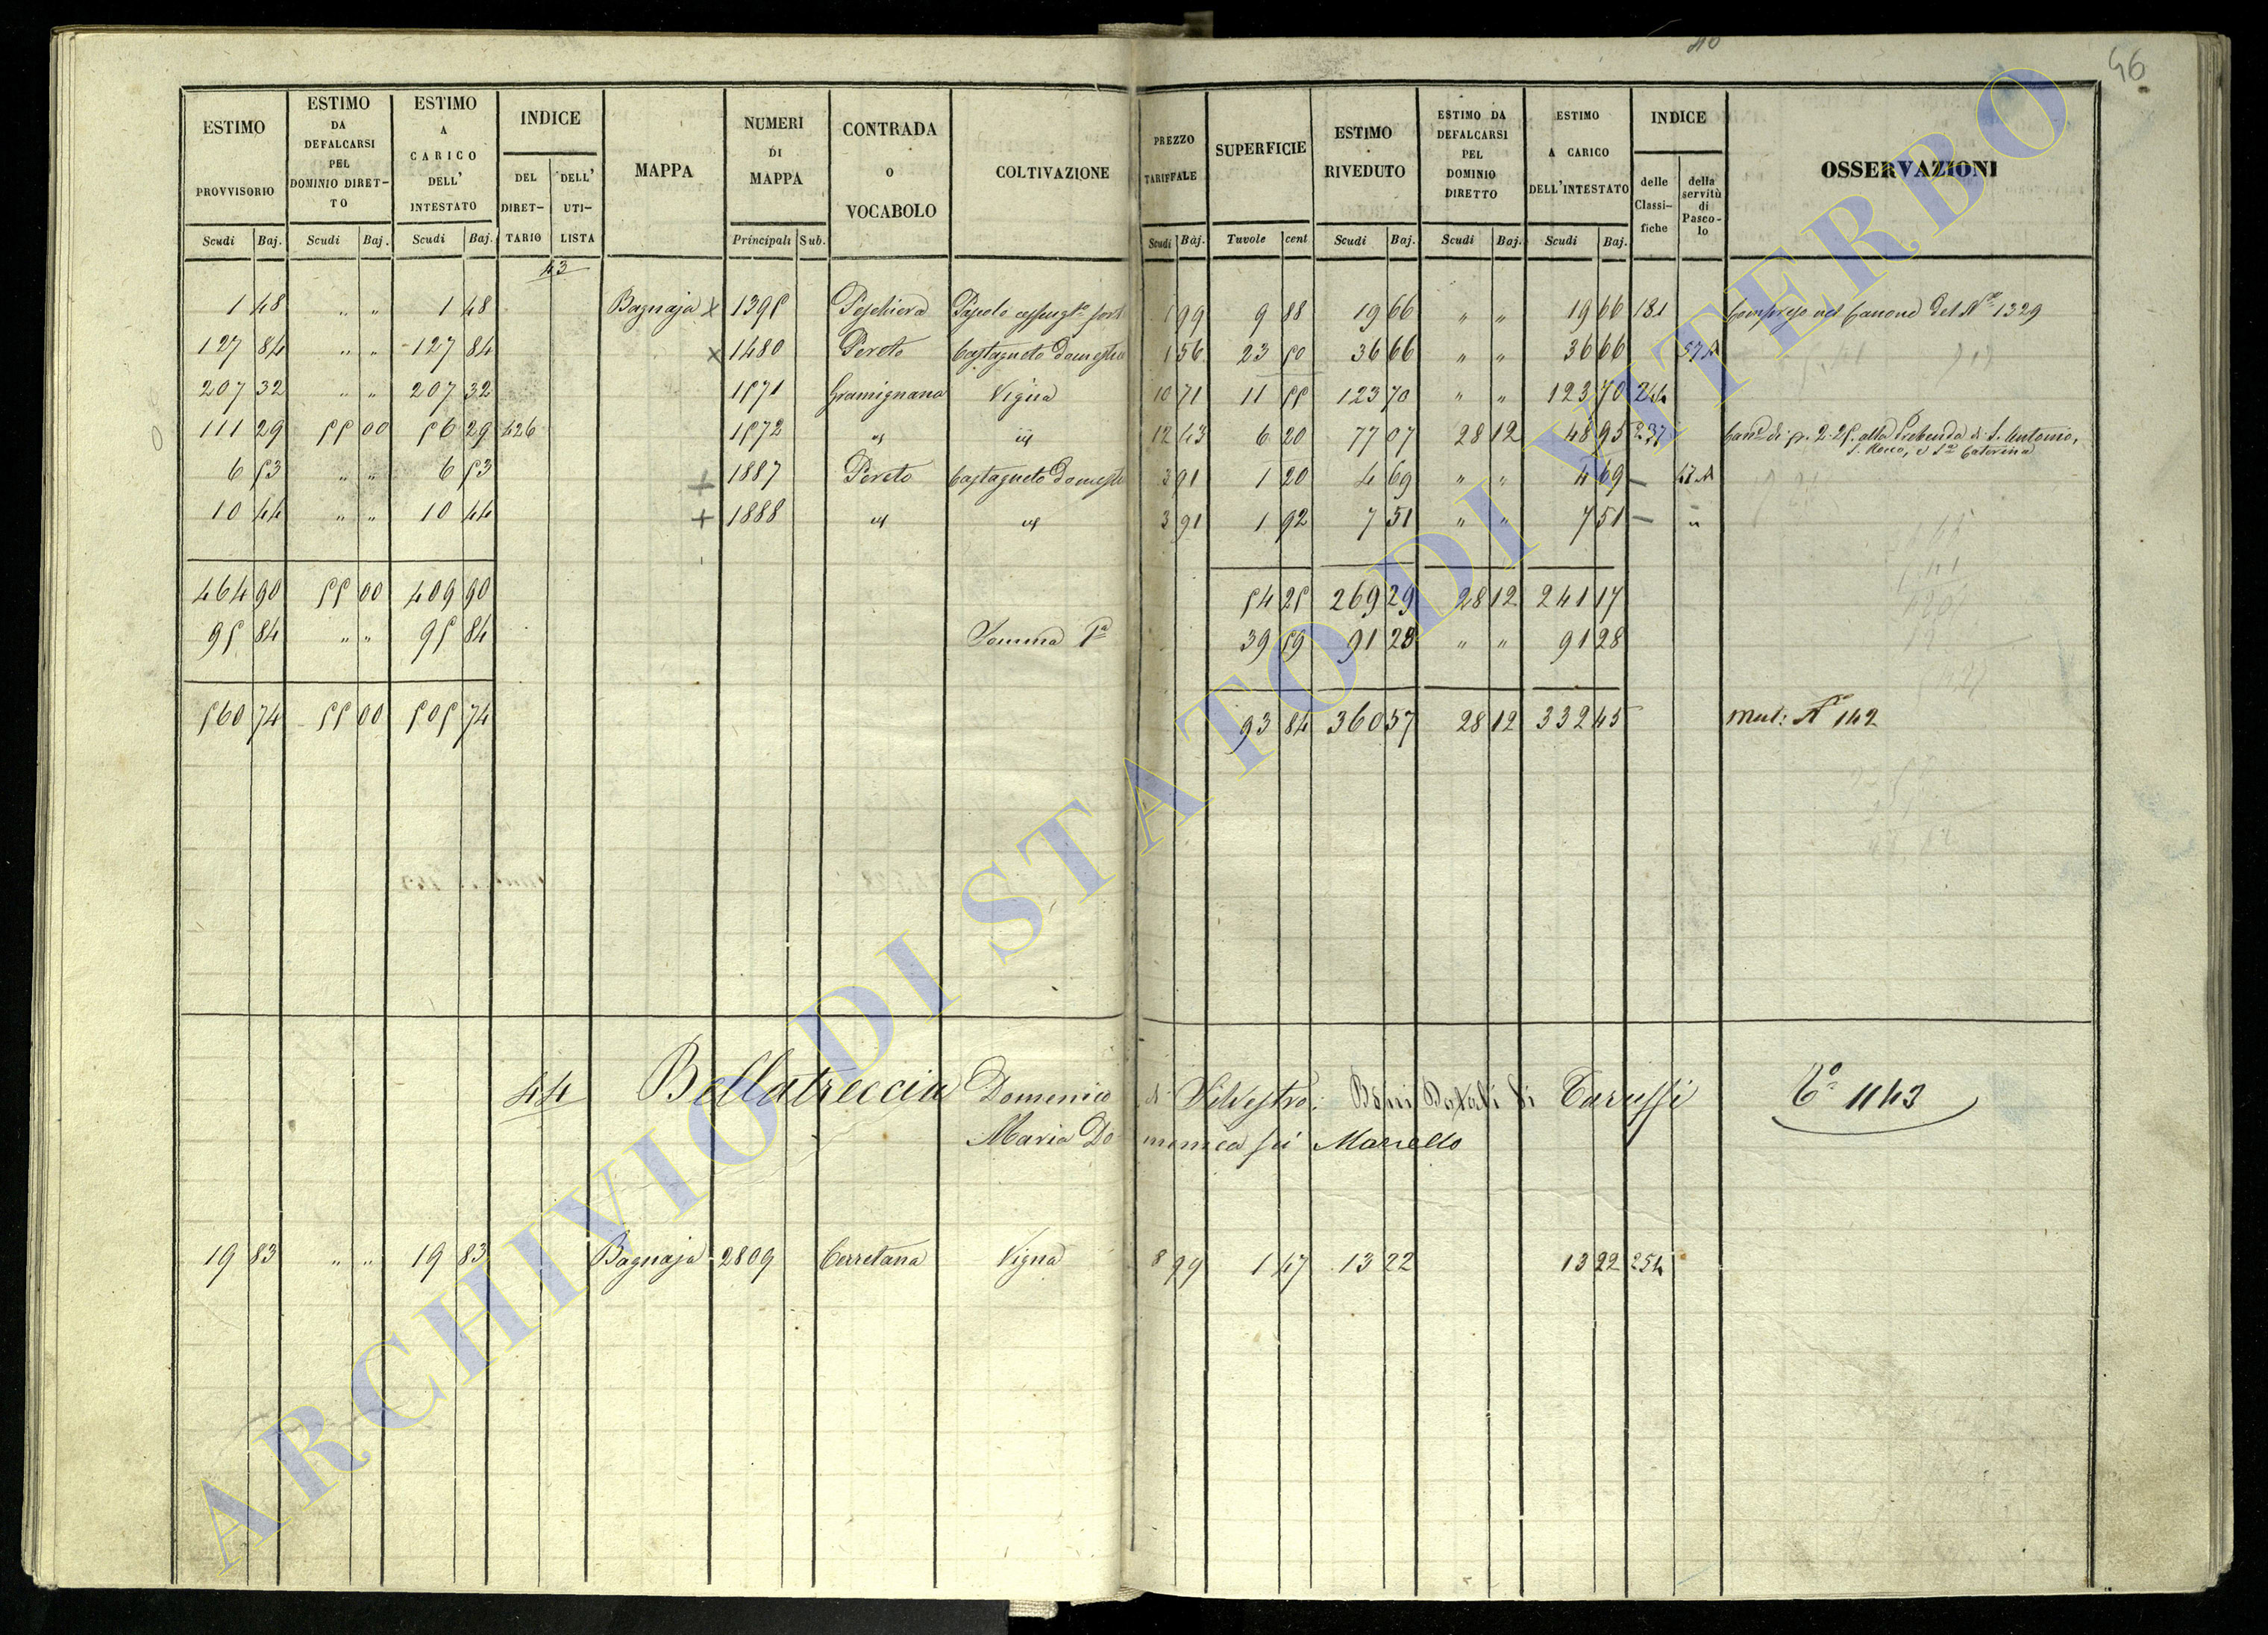 40
46
ESTIMO PROVVISORIO
ESTIMO DA DEFALCARSI PEL DOMINIO DIRET-TO
ESTIMO A CARICO DELL' INTESTATO
INDICE
DEL DIRET-TARIO
DELL' UTI-LISTA
MAPPA
NUMERI DI MAPPA
CONTRADA O VOCABOLO
COLTIVAZIONE
PREZZO TARIFFALE
SUPERFICIE
ESTIMO RIVEDUTO
ESTIMO DA DEFALCARSI PEL DOMINIO DIRETTO
ESTIMO A CARICO DELL'INTESTATO
INDICE
delle Classi-fiche
della servitù di Pasco-lo
OSSERVAZIONI
Scudi Baj. Scudi Baj. Scudi Baj. Principali Sub. Scudi Baj. Tavole cent Scudi Baj. Scudi Baj. Scudi Baj.
43
1 48 " " 1 48 Bagnaja x 1395 Peschiera 1 99 9 88 19 66 " " 19 66 181 Compreso nel Canone del N° 1329
127 84 " " 127 84 x 1480 Pereto Castagneto Domestico 1 56 23 50 36 66 " " 36 66 57 A
207 32 " " 207 32 1571 Gramignana Vigna 10 71 11 55 123 70 " " 123 70 244
111 29 55 00 56 29 426 1572 id id 12 43 6 20 77 07 28 12 48 95 237 Can° di s. 2.25. alla Prebenda di S. Antonio,
S. Rocco, e Sa Caterina
6 53 " " 6 53 + 1887 Pereto Castagneto Domestico 3 91 1 20 4 69 " " 4 69 — 47 A
10 44 " " 10 44 + 1888 id id 3 91 1 92 7 51 " " 7 51 — "
464 90 55 00 409 90 54 25 269 29 28 12 241 17
95 84 " " 95 84 Somma Pa 39 59 91 28 " " 91 28
560 74 55 00 505 74 93 84 360 57 28 12 332 45 Mut: N° 142
44 Bellatreccia Domenico di Silvestro: Beni Dotali di Carussi C° 1143
Maria Domenica fu Marcello
19 83 " " 19 83 Bagnaja 2809 Cerretana Vigna 8 99 1 47 13 22 13 22 254
ARCHIVIO DI STATO DI VITERBO